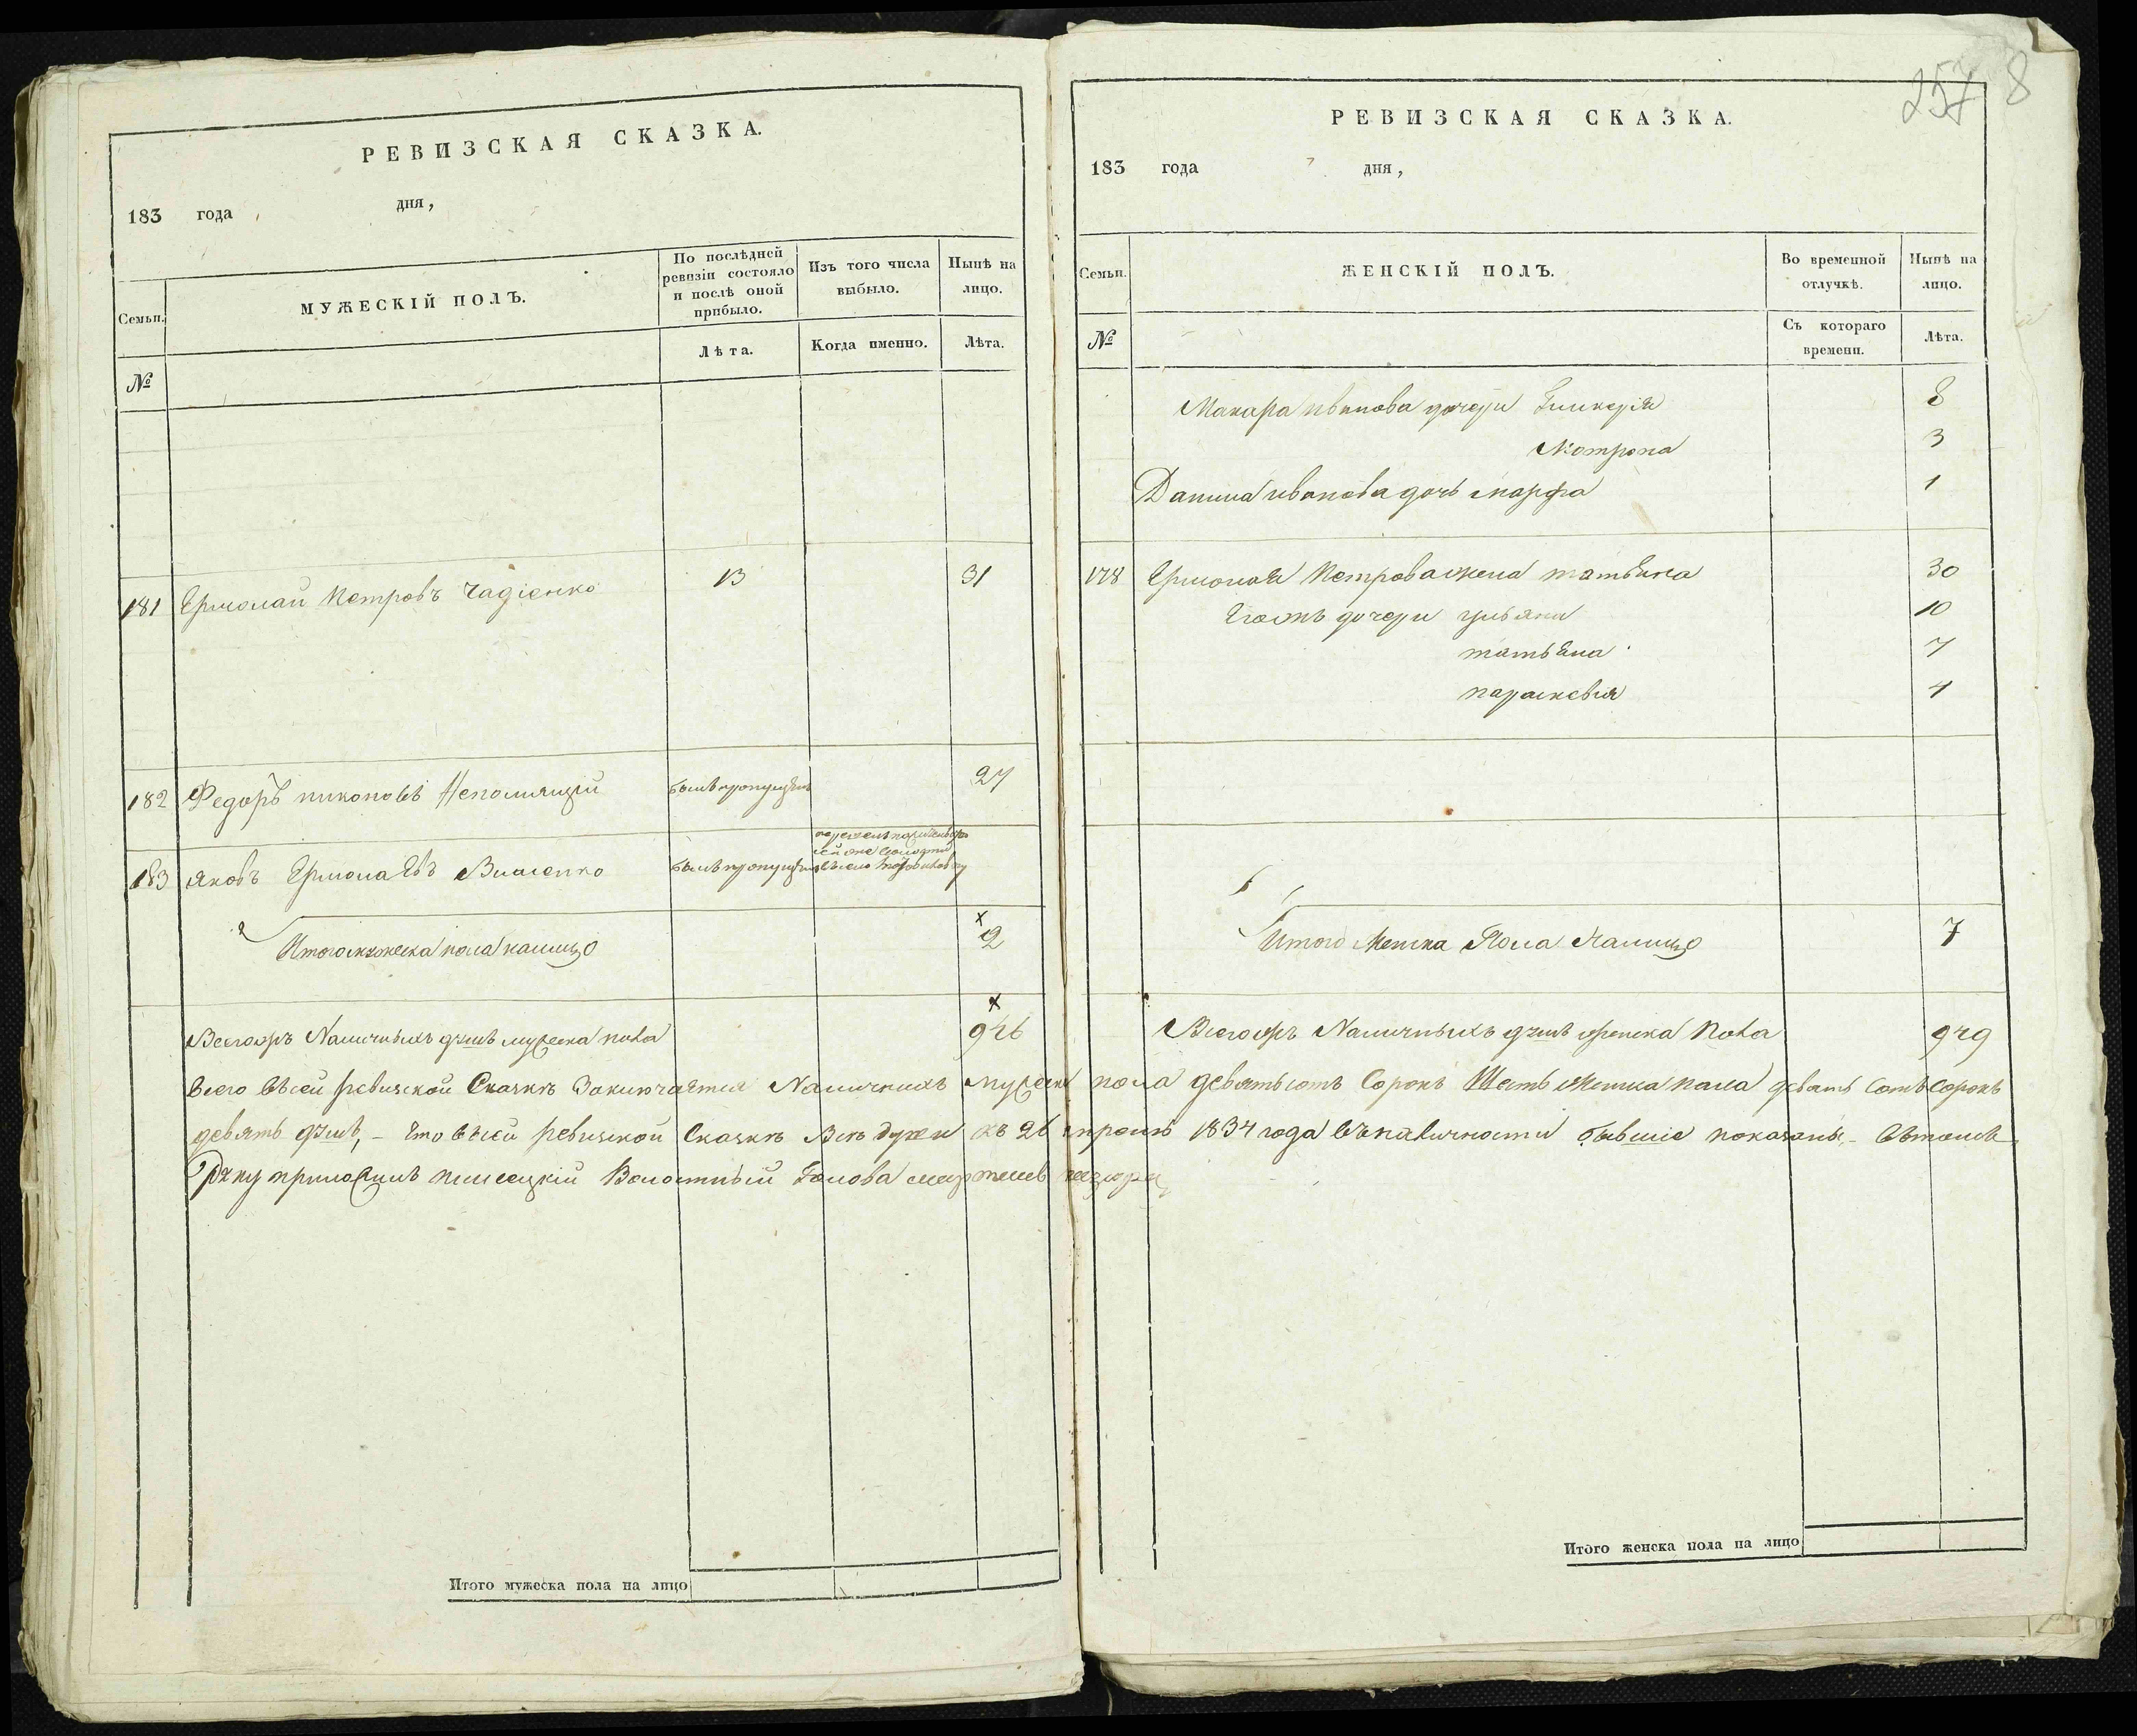 РЕВИЗСКАЯ СКАЗКА.
183 года дня,
Семьи.
МУЖЕСКІЙ ПОЛЪ.
По послѣдней ревизіи состояло и послѣ оной прибыло.
Изъ того числа выбыло.
Нынѣ на лицо.
№
Лѣта.
Когда именно.
Лѣта.
181 Ермолай Петровъ Чадіенко 13 31
182 Федоръ никоновъ Непомнящій былъ пропущенъ 27
183 яковъ Ермолаевъ Власенко былъ пропущенъ
Итого мужеска пола налицо 2
Всегожъ Наличныхъ душъ мужеска пола 946
Всего въсей ревизской Сказкѣ Заключается Наличныхъ мужеска пола девятьсотъ Сорокъ Шесть женска пола девять Сотъ Сорокъ
девять душъ, - что въсей ревизской Сказкѣ Всѣ души къ 26 апреля 1834 года въналичности бывшіе показаны, - Вътомъ
Руку приложилъ Волостный Голова
Итого мужеска пола на лицо
257 8
РЕВИЗСКАЯ СКАЗКА.
183 года дня,
Семьи.
ЖЕНСКІЙ ПОЛЪ.
Во временной отлучкѣ.
Нынѣ на лицо.
№
Съ котораго времени.
Лѣта.
Макара иванова дочери Гликерія 8
Мотрона 3
Данила иванова дочь марфа 1
178 Ермолая Петрова жена татьяна 30
Егожъ дочери ульяна 10
татьяна 7
параскевія 4
Итого Женска Пола Налицо 7
Всегожъ Наличныхъ душъ женска Пола 949
Итого женска пола на лицо